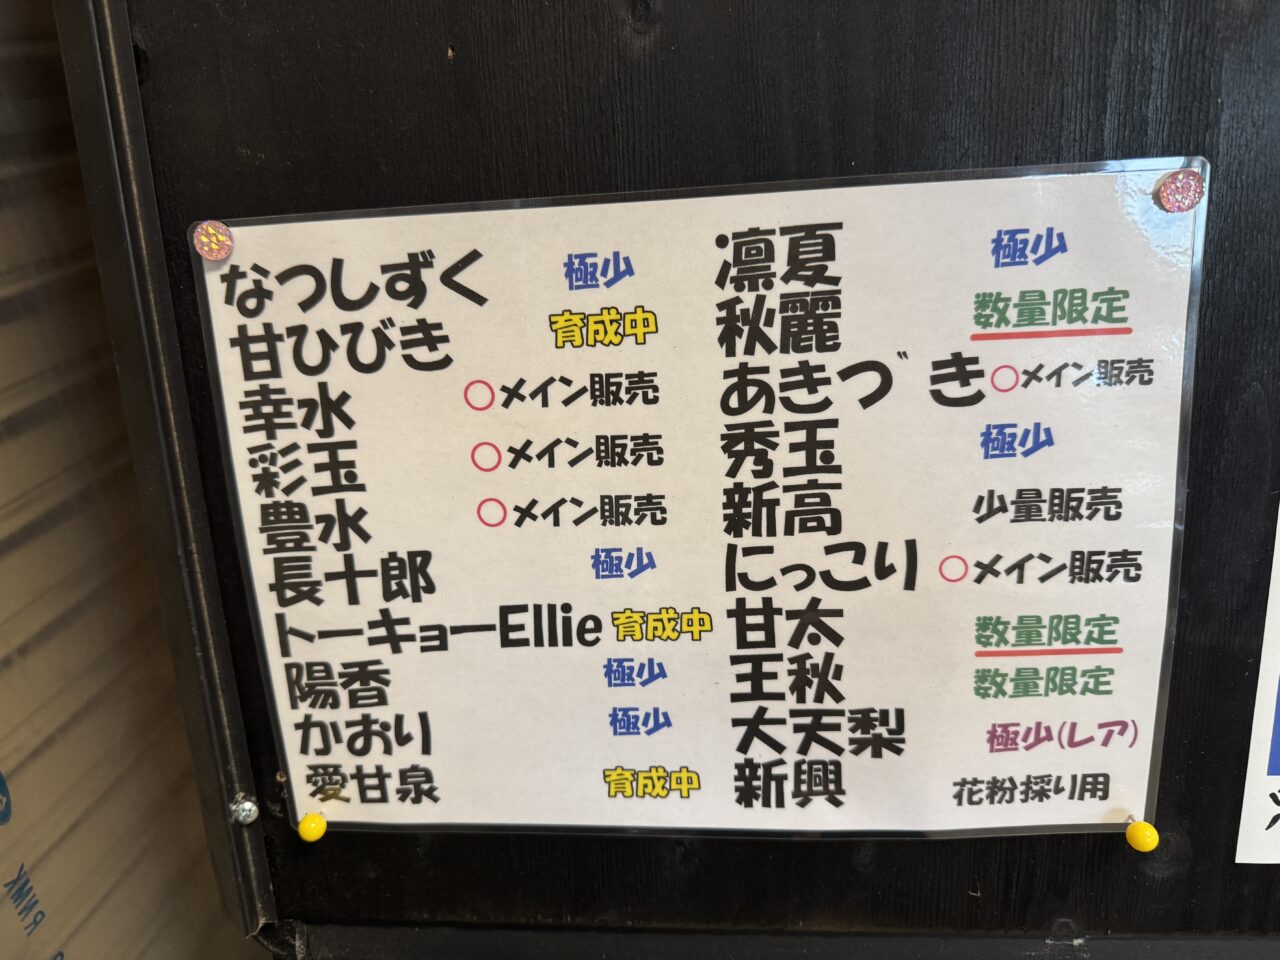 なつしずく 極少
甘ひびき 育成中
幸水 ○メイン販売
彩玉 ○メイン販売
豊水 ○メイン販売
長十郎 極少
トーキョーEllie 育成中
陽香 極少
かおり 極少
愛甘泉 育成中
凛夏 極少
秋麗 数量限定
あきづき ○メイン販売
秀玉 極少
新高 少量販売
にっこり ○メイン販売
甘太 数量限定
王秋 数量限定
大天梨 極少(レア)
新興 花粉採り用